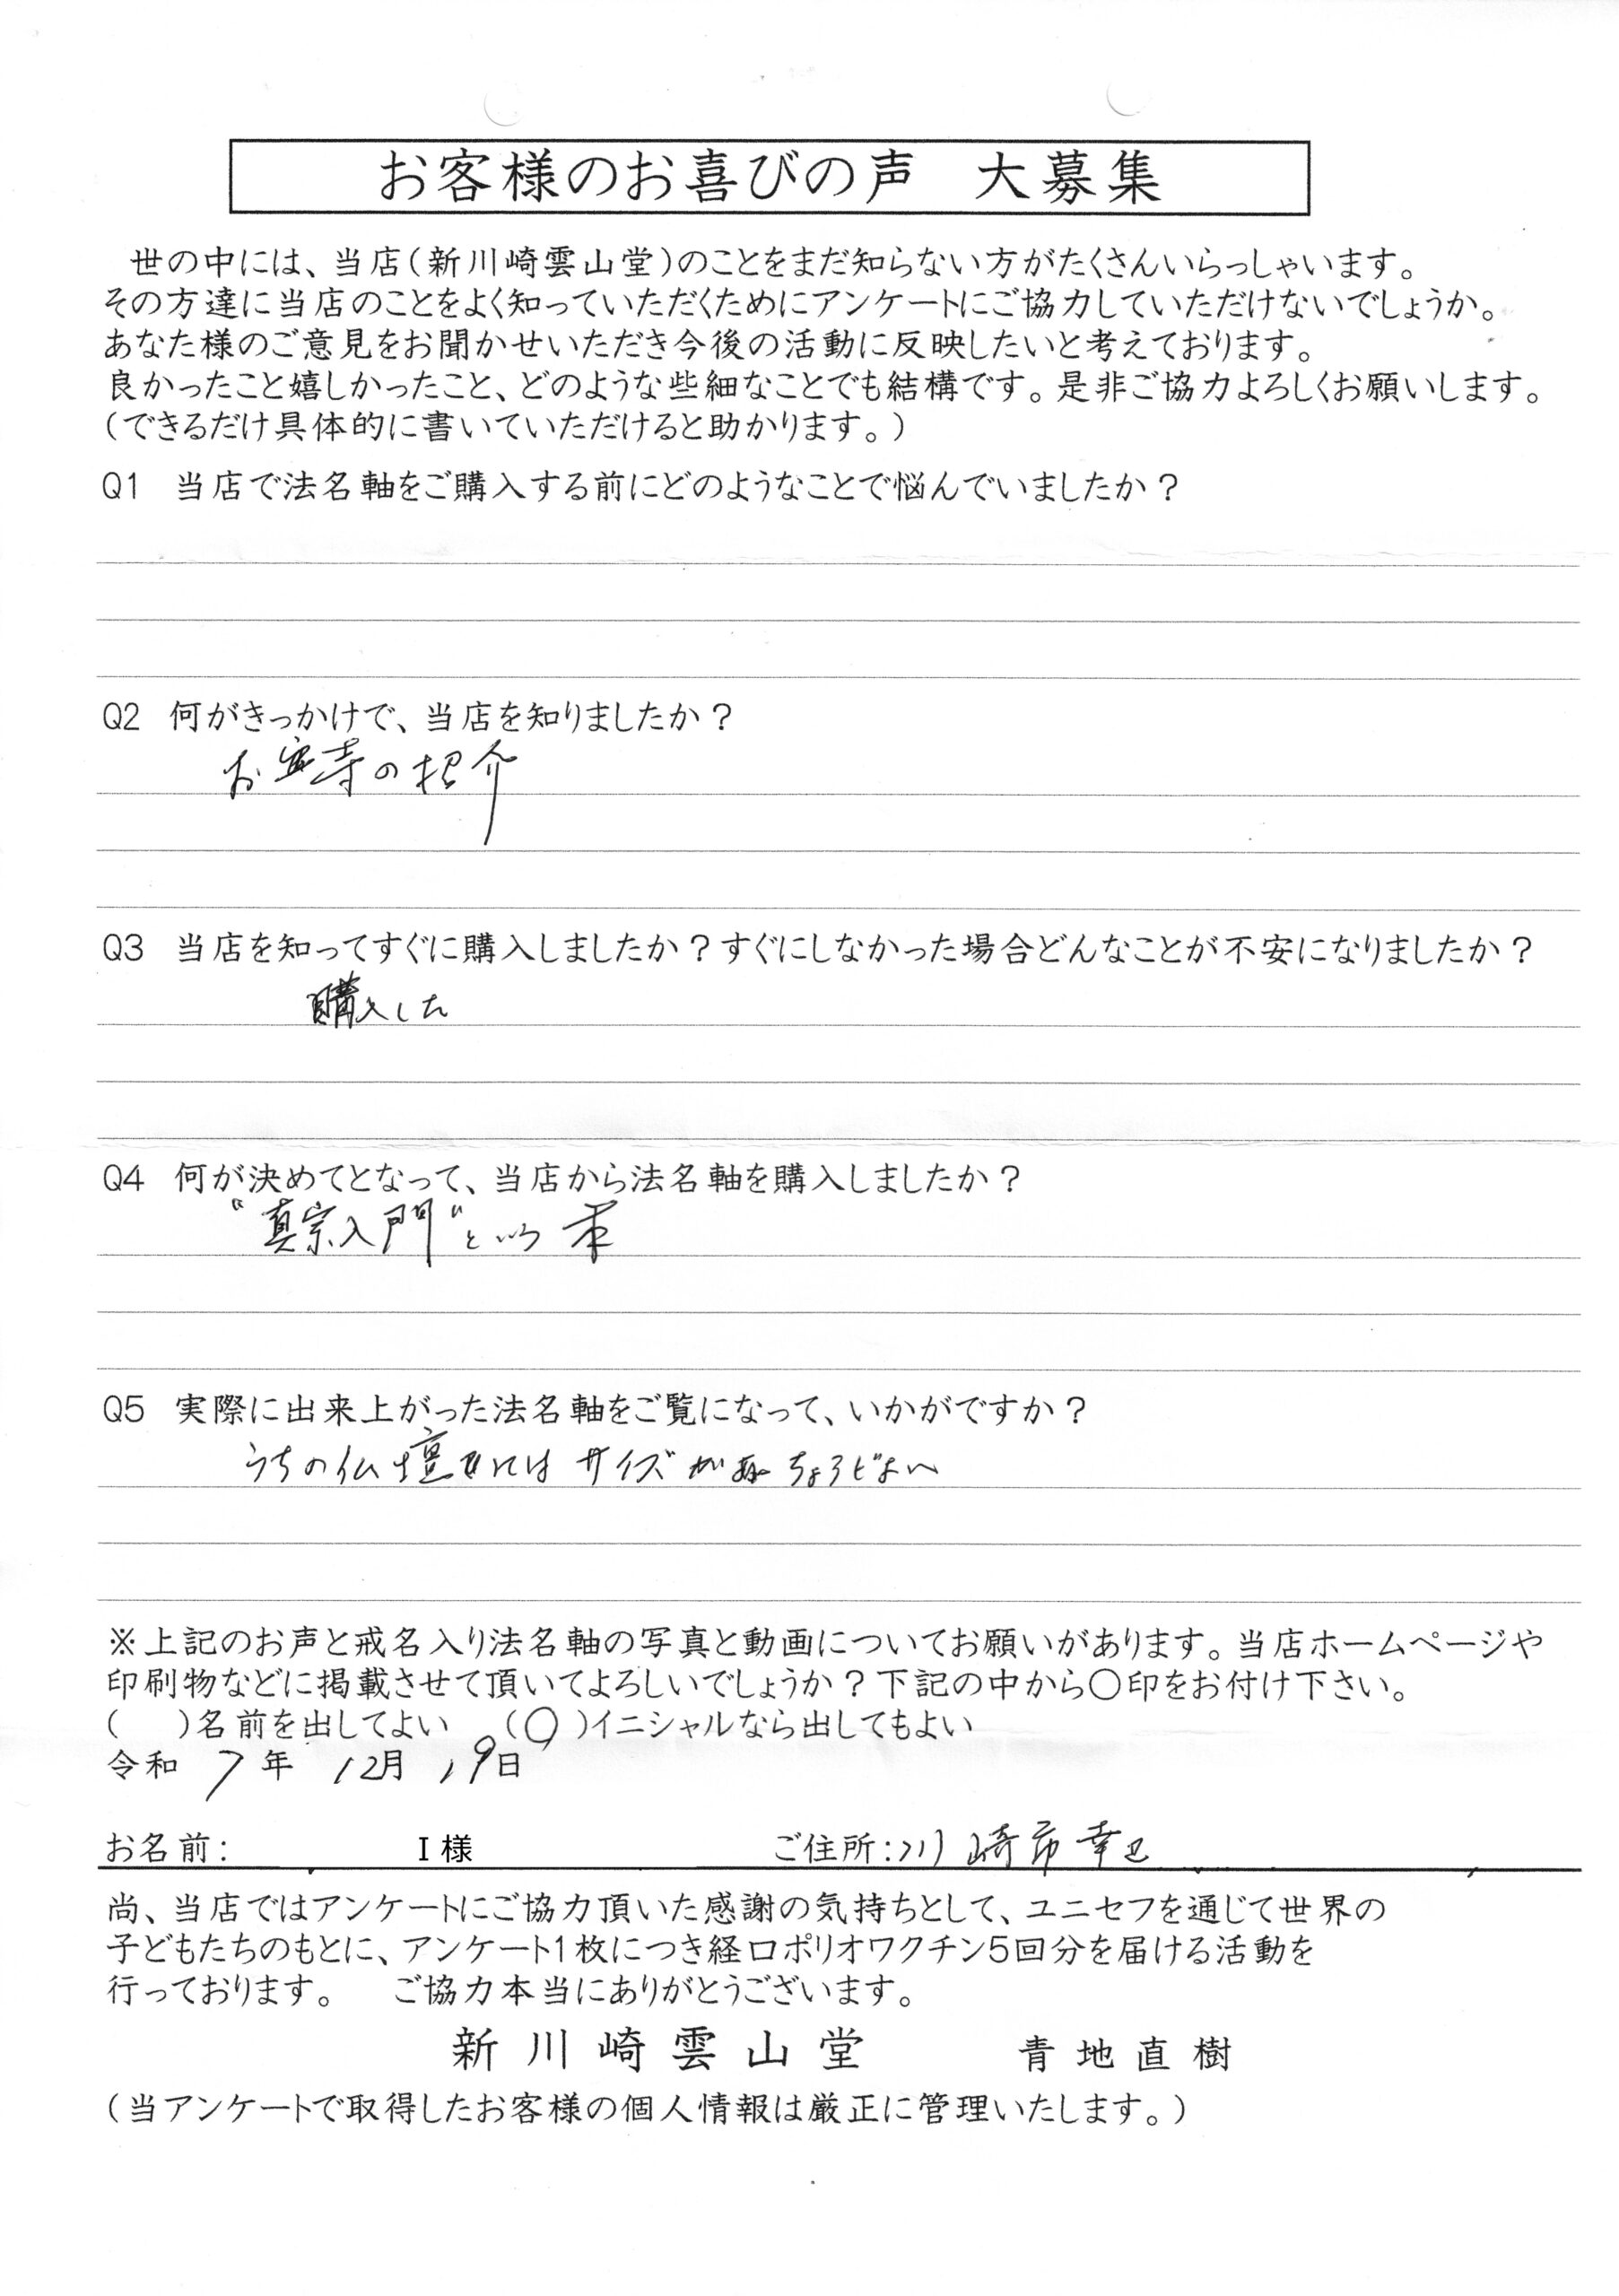 お客様のお喜びの声　大募集
世の中には、当店(新川崎雲山堂)のことをまだ知らない方がたくさんいらっしゃいます。
その方達に当店のことをよく知っていただくためにアンケートにご協力していただけないでしょうか。
あなた様のご意見をお聞かせいただき今後の活動に反映したいと考えております。
良かったこと嬉しかったこと、どのような些細なことでも結構です。是非ご協力よろしくお願いします。
(できるだけ具体的に書いていただけると助かります。)
Q1　当店で法名軸をご購入する前にどのようなことで悩んでいましたか？
Q2　何がきっかけで、当店を知りましたか？
お寺の紹介
Q3　当店を知ってすぐに購入しましたか？すぐにしなかった場合どんなことが不安になりましたか？
購入した
Q4　何が決めてとなって、当店から法名軸を購入しましたか？
“真宗入門”という本
Q5　実際に出来上がった法名軸をご覧になって、いかがですか？
うちの仏壇にはサイズがちょうどよい
※上記のお声と戒名入り法名軸の写真と動画についてお願いがあります。当店ホームページや
印刷物などに掲載させて頂いてよろしいでしょうか？下記の中から〇印をお付け下さい。
(　　)名前を出してよい　　(〇)イニシャルなら出してもよい
令和　7年　12月　19日
お名前：　I 様　ご住所：川崎市幸区
尚、当店ではアンケートにご協力頂いた感謝の気持ちとして、ユニセフを通じて世界の
子どもたちのもとに、アンケート1枚につき経口ポリオワクチン5回分を届ける活動を
行っております。　ご協力本当にありがとうございます。
新川崎雲山堂　青地直樹
(当アンケートで取得したお客様の個人情報は厳正に管理いたします。)